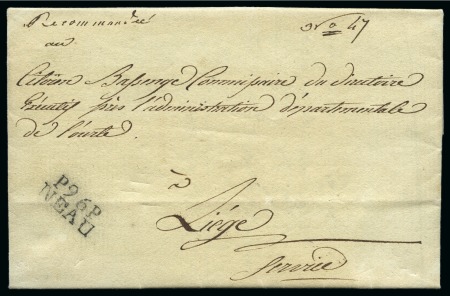 Recommandée
No 47
au
Citoien Bassenge Commissaire du directoire
Exécutif près l'administration départementale
de l'ourte
à
Liége
Service
P96P
NEAU